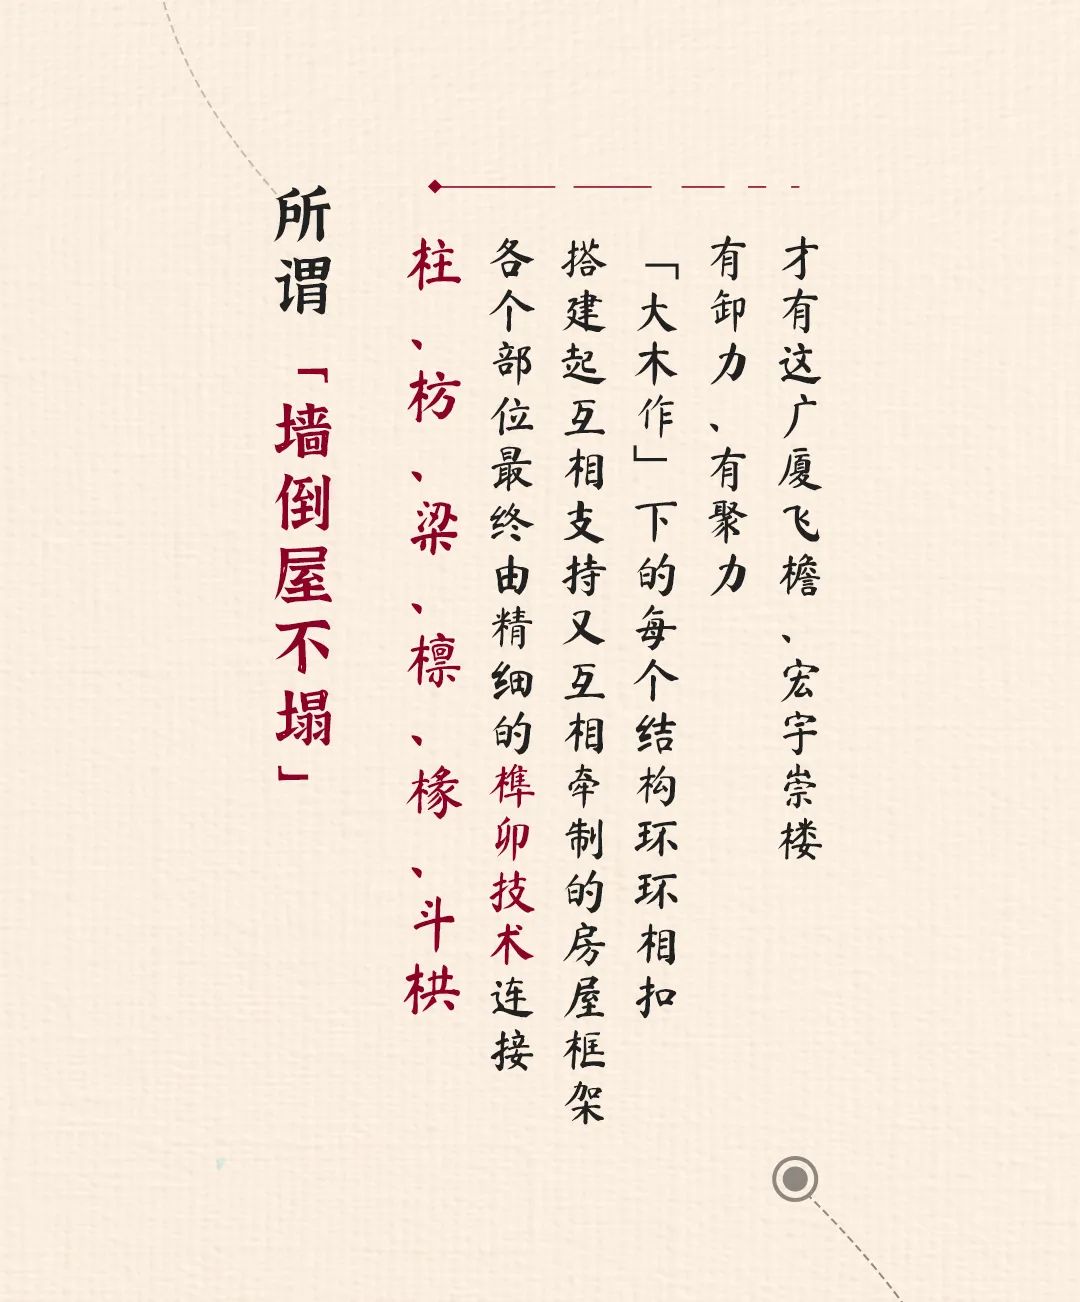 所谓「墙倒屋不塌」
柱、枋、梁、檩、椽、斗栱
各个部位最终由精细的榫卯技术连接
搭建起互相支持又互相牵制的房屋框架
「大木作」下的每个结构环环相扣
有卸力、有聚力
才有这广厦飞檐、宏宇崇楼